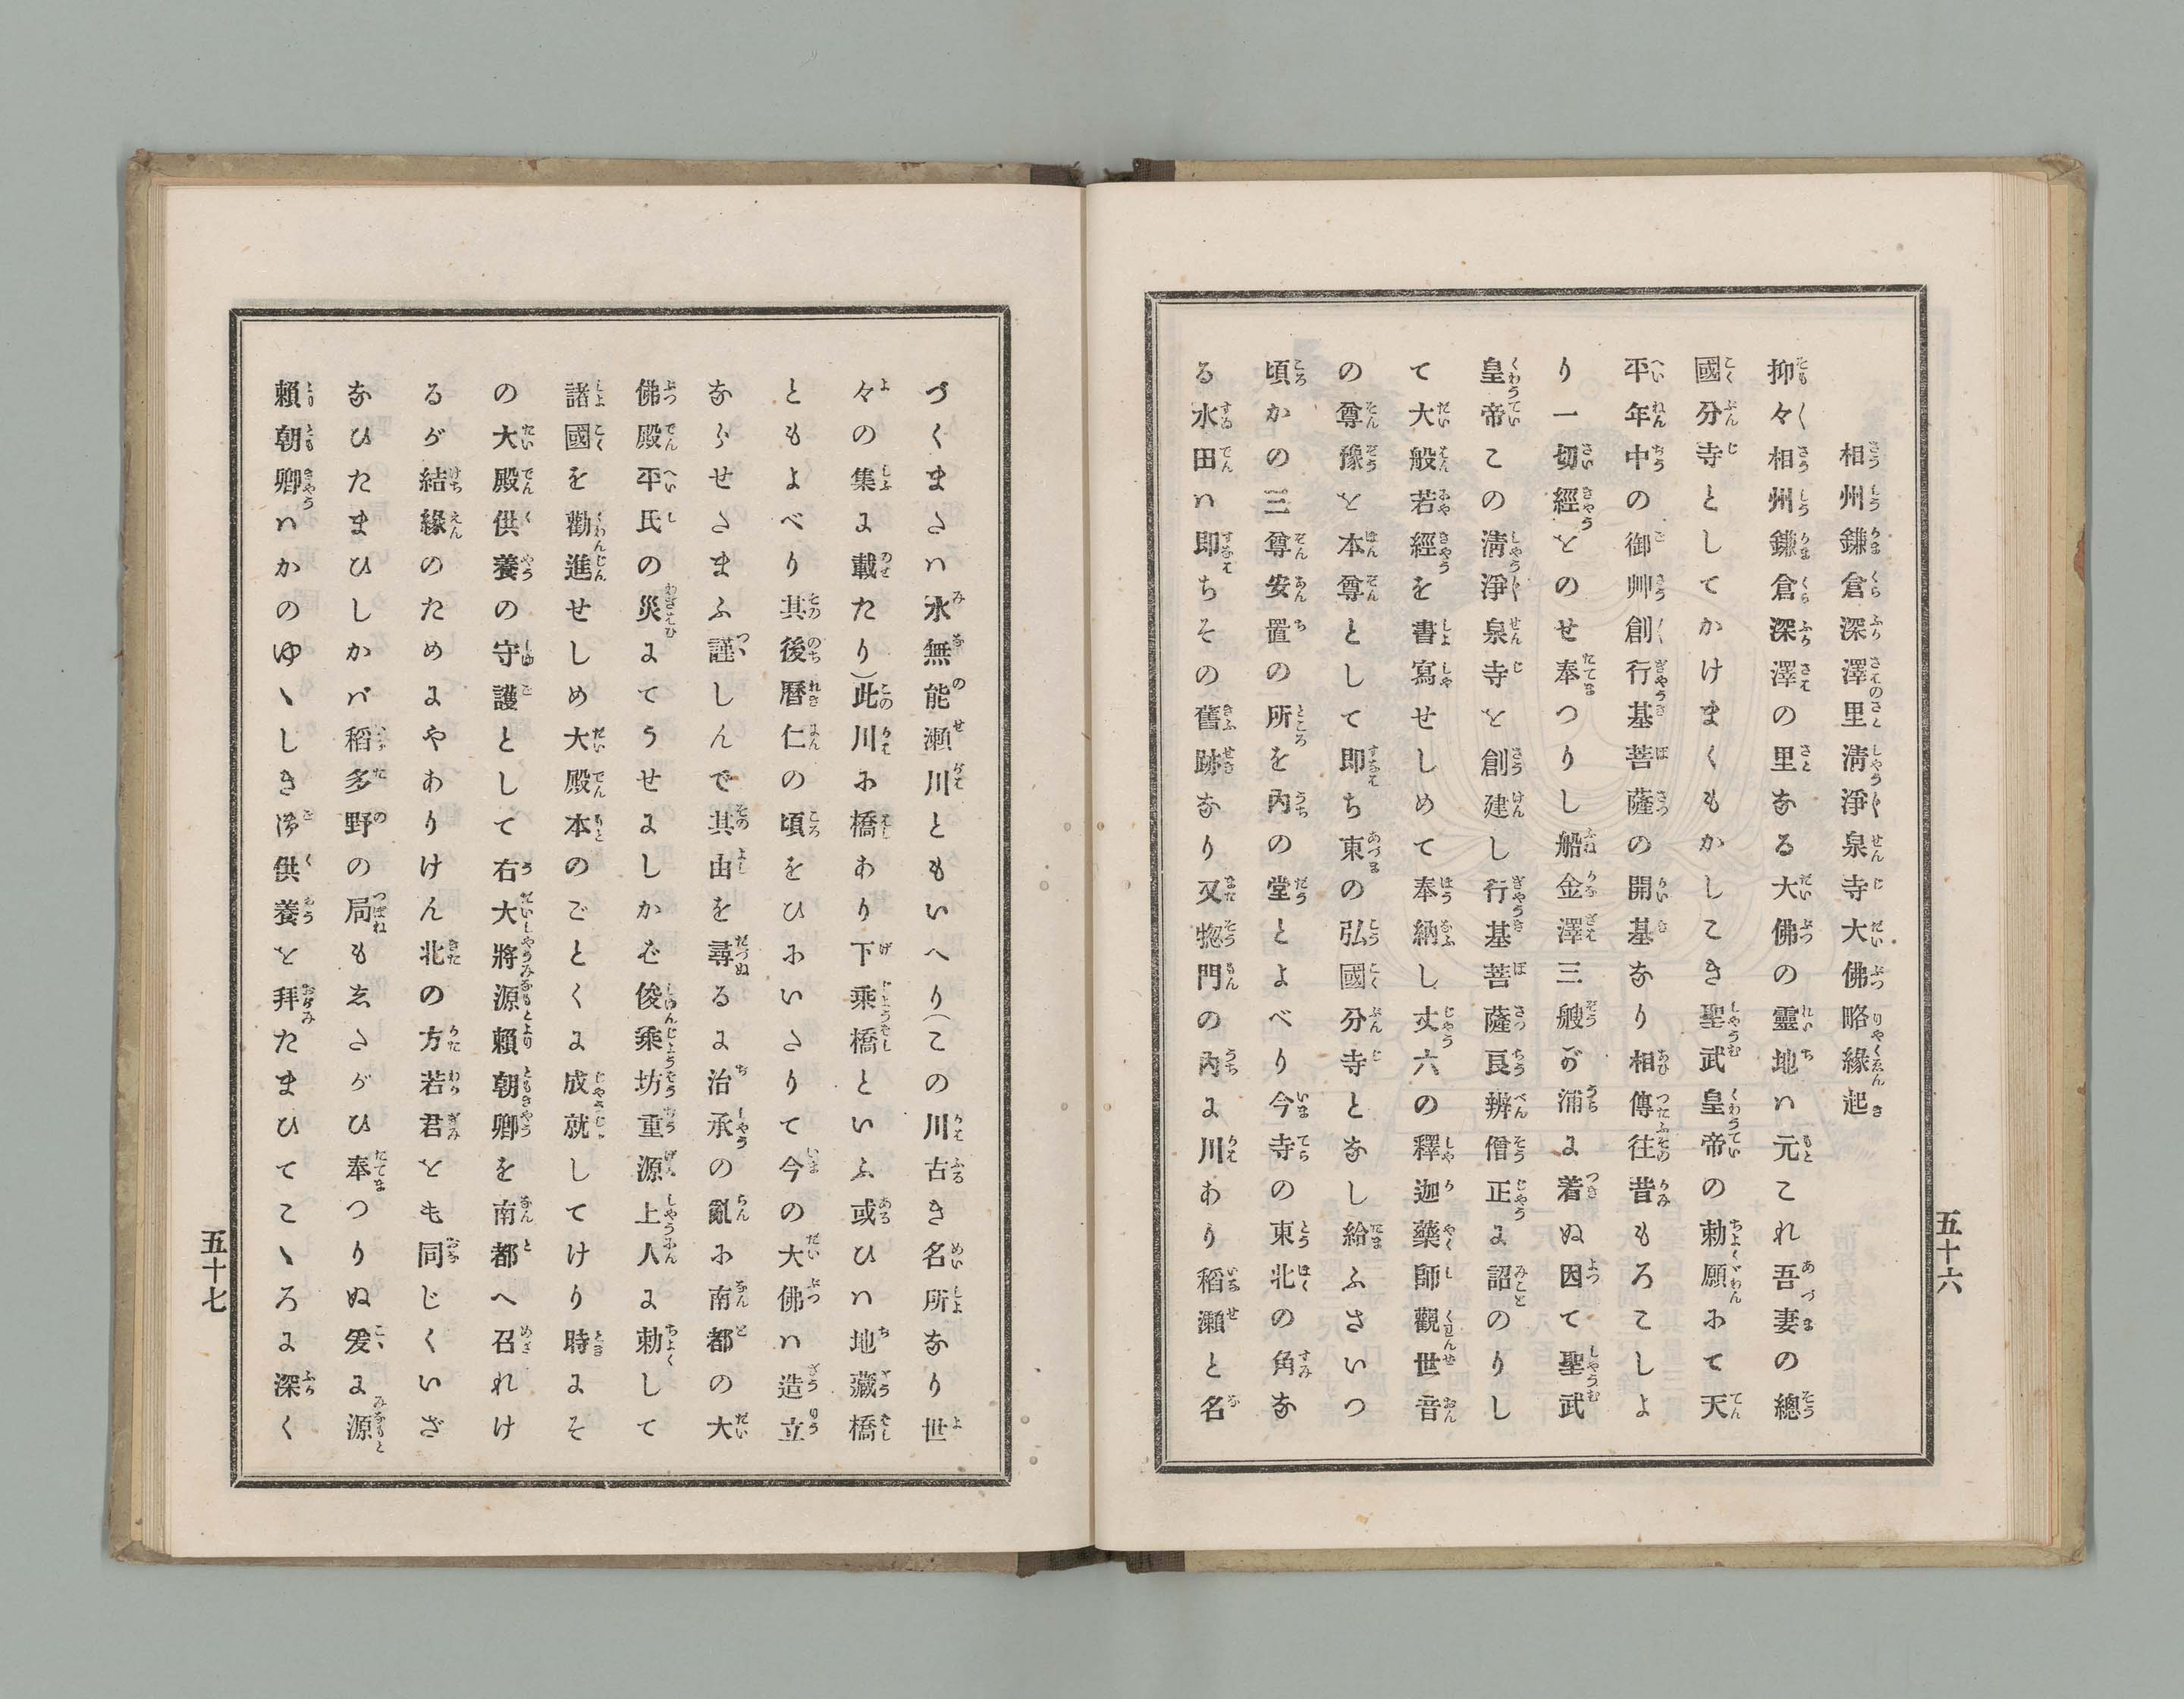 相州鎌倉深澤里淸淨泉寺大佛略緣起
抑々相州鎌倉深澤の里なる大佛の靈地ハ元これ吾妻の總
國分寺としてかけまくもかしこき聖武皇帝の勅願にて天
平年中の御艸創行基菩薩の開基なり相傳往昔もろこしよ
り一切經をのせ奉つりし船金澤三艘が浦に着ぬ因て聖武
皇帝この淸淨泉寺を創建し行基菩薩良辨僧正に詔のりし
て大般若經を書寫せしめて奉納し丈六の釋迦藥師觀世音
の尊豫を本尊として即ち東の弘國分寺となし給ふさいつ
頃かの三尊安置の所を內の堂とよべり今寺の東北の角な
る水田ハ即ちその舊跡なり又惣門の內に川あり稻瀨と名
五十六
づくまさハ水無能瀨川ともいへり(この川古き名所なり世
々の集に載たり)此川に橋あり下乘橋といふ或ひハ地藏橋
ともよべり其後曆仁の頃をひにいさりて今の大佛ハ造立
ならせさまふ謹しんで其由を尋るに治承の亂に南都の大
佛殿平氏の災にてうせにしかど俊乘坊重源上人に勅して
諸國を勸進せしめ大殿本のごとくに成就してけり時にそ
の大殿供養の守護として右大將源賴朝卿を南都へ召れけ
るが結緣のためにやありけん北の方若君とも同じくいざ
なひたまひしかバ稻多野の局もゑさがひ奉つりぬ爰に源
賴朝卿ハかのゆゝしき御供養を拜たまひてこゝろに深く
五十七